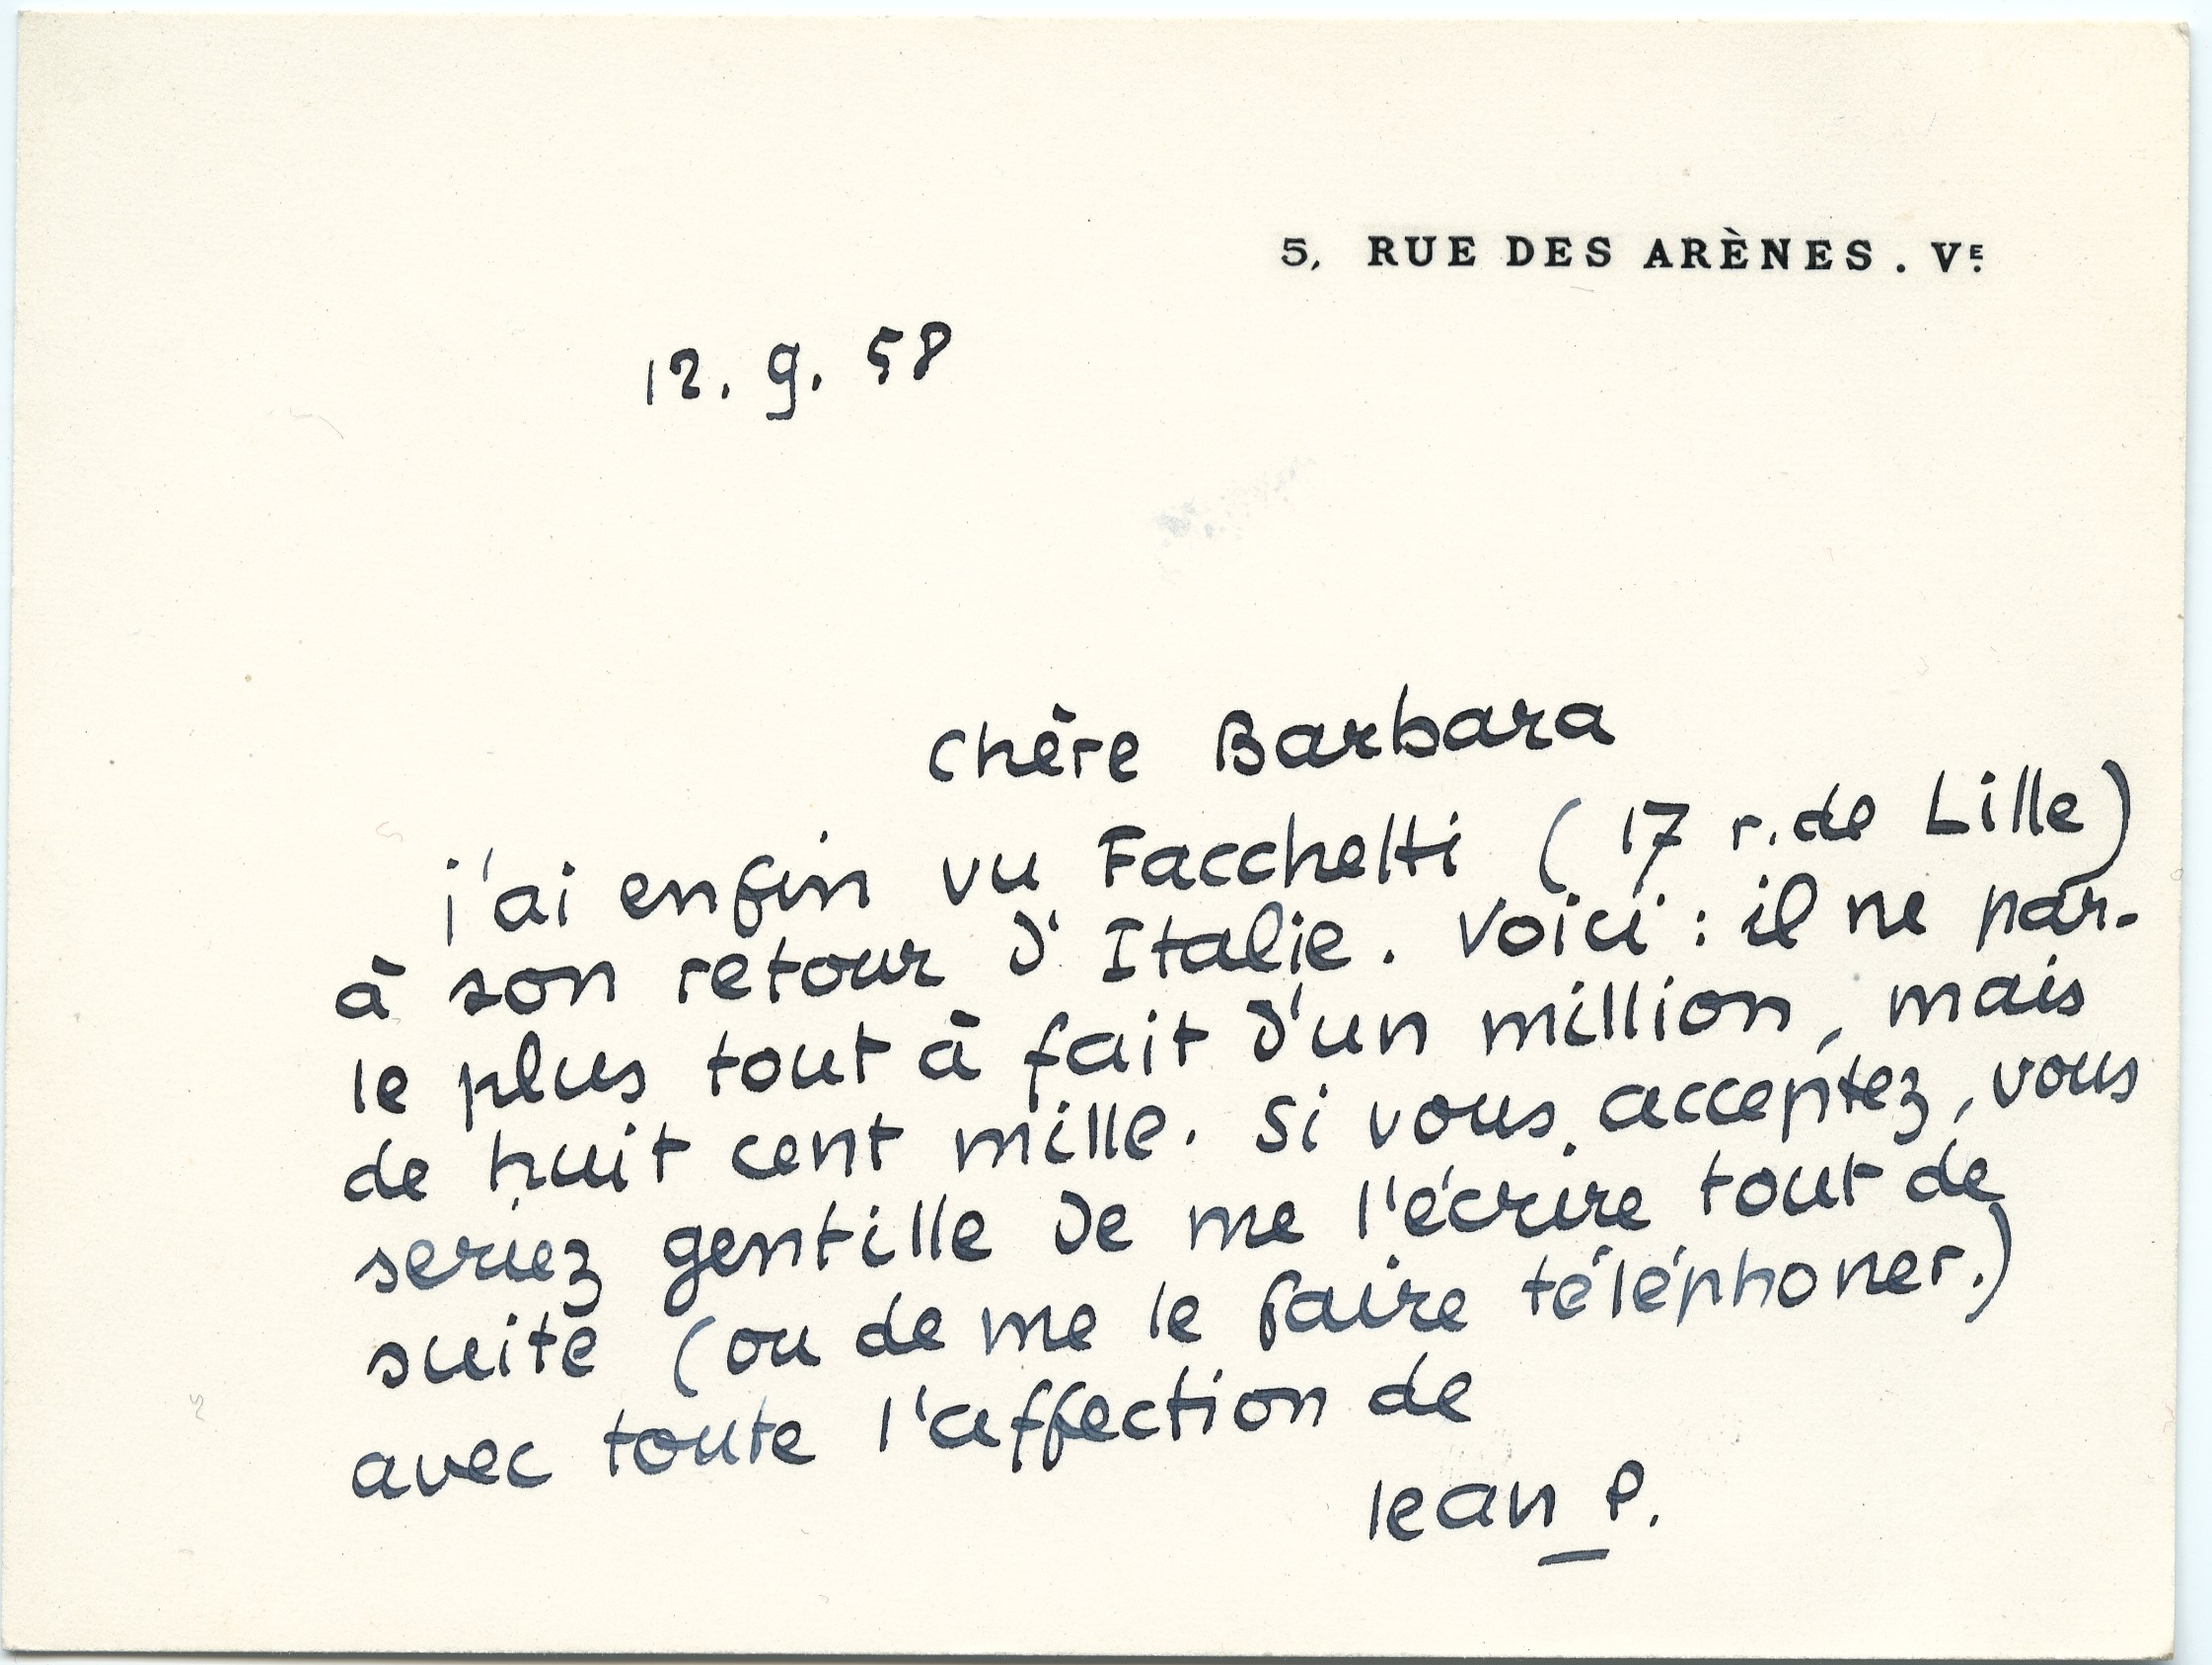 5, RUE DES ARÈNES. Vᴱ.
12. 9. 58
Chère Barbara
j'ai enfin vu Facchetti (17 r. de Lille)
à son retour d'Italie. Voici : il ne par-
le plus tout à fait d'un million, mais
de huit cent mille. Si vous acceptez, vous
seriez gentille de me l'écrire tout de
suite (ou de me le faire téléphoner.)
avec toute l'affection de
Jean P.